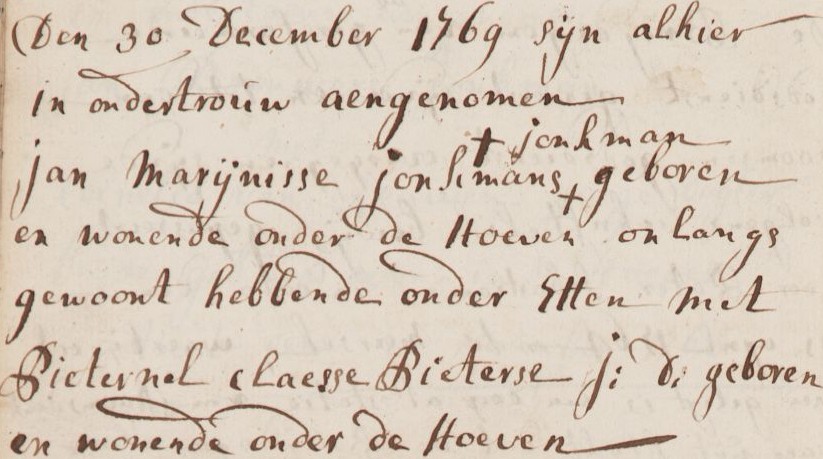 Den 30 December 1769 sijn alhier
in ondertrouw aengenomen
+ jonkman
Jan Marijnisse jonkmans + geboren
en wonende onder de Hoeven onlangs
gewoont hebbende onder Etten met
Pieternel Claesse Pieterse j: d: geboren
en wonende onder de Hoeven